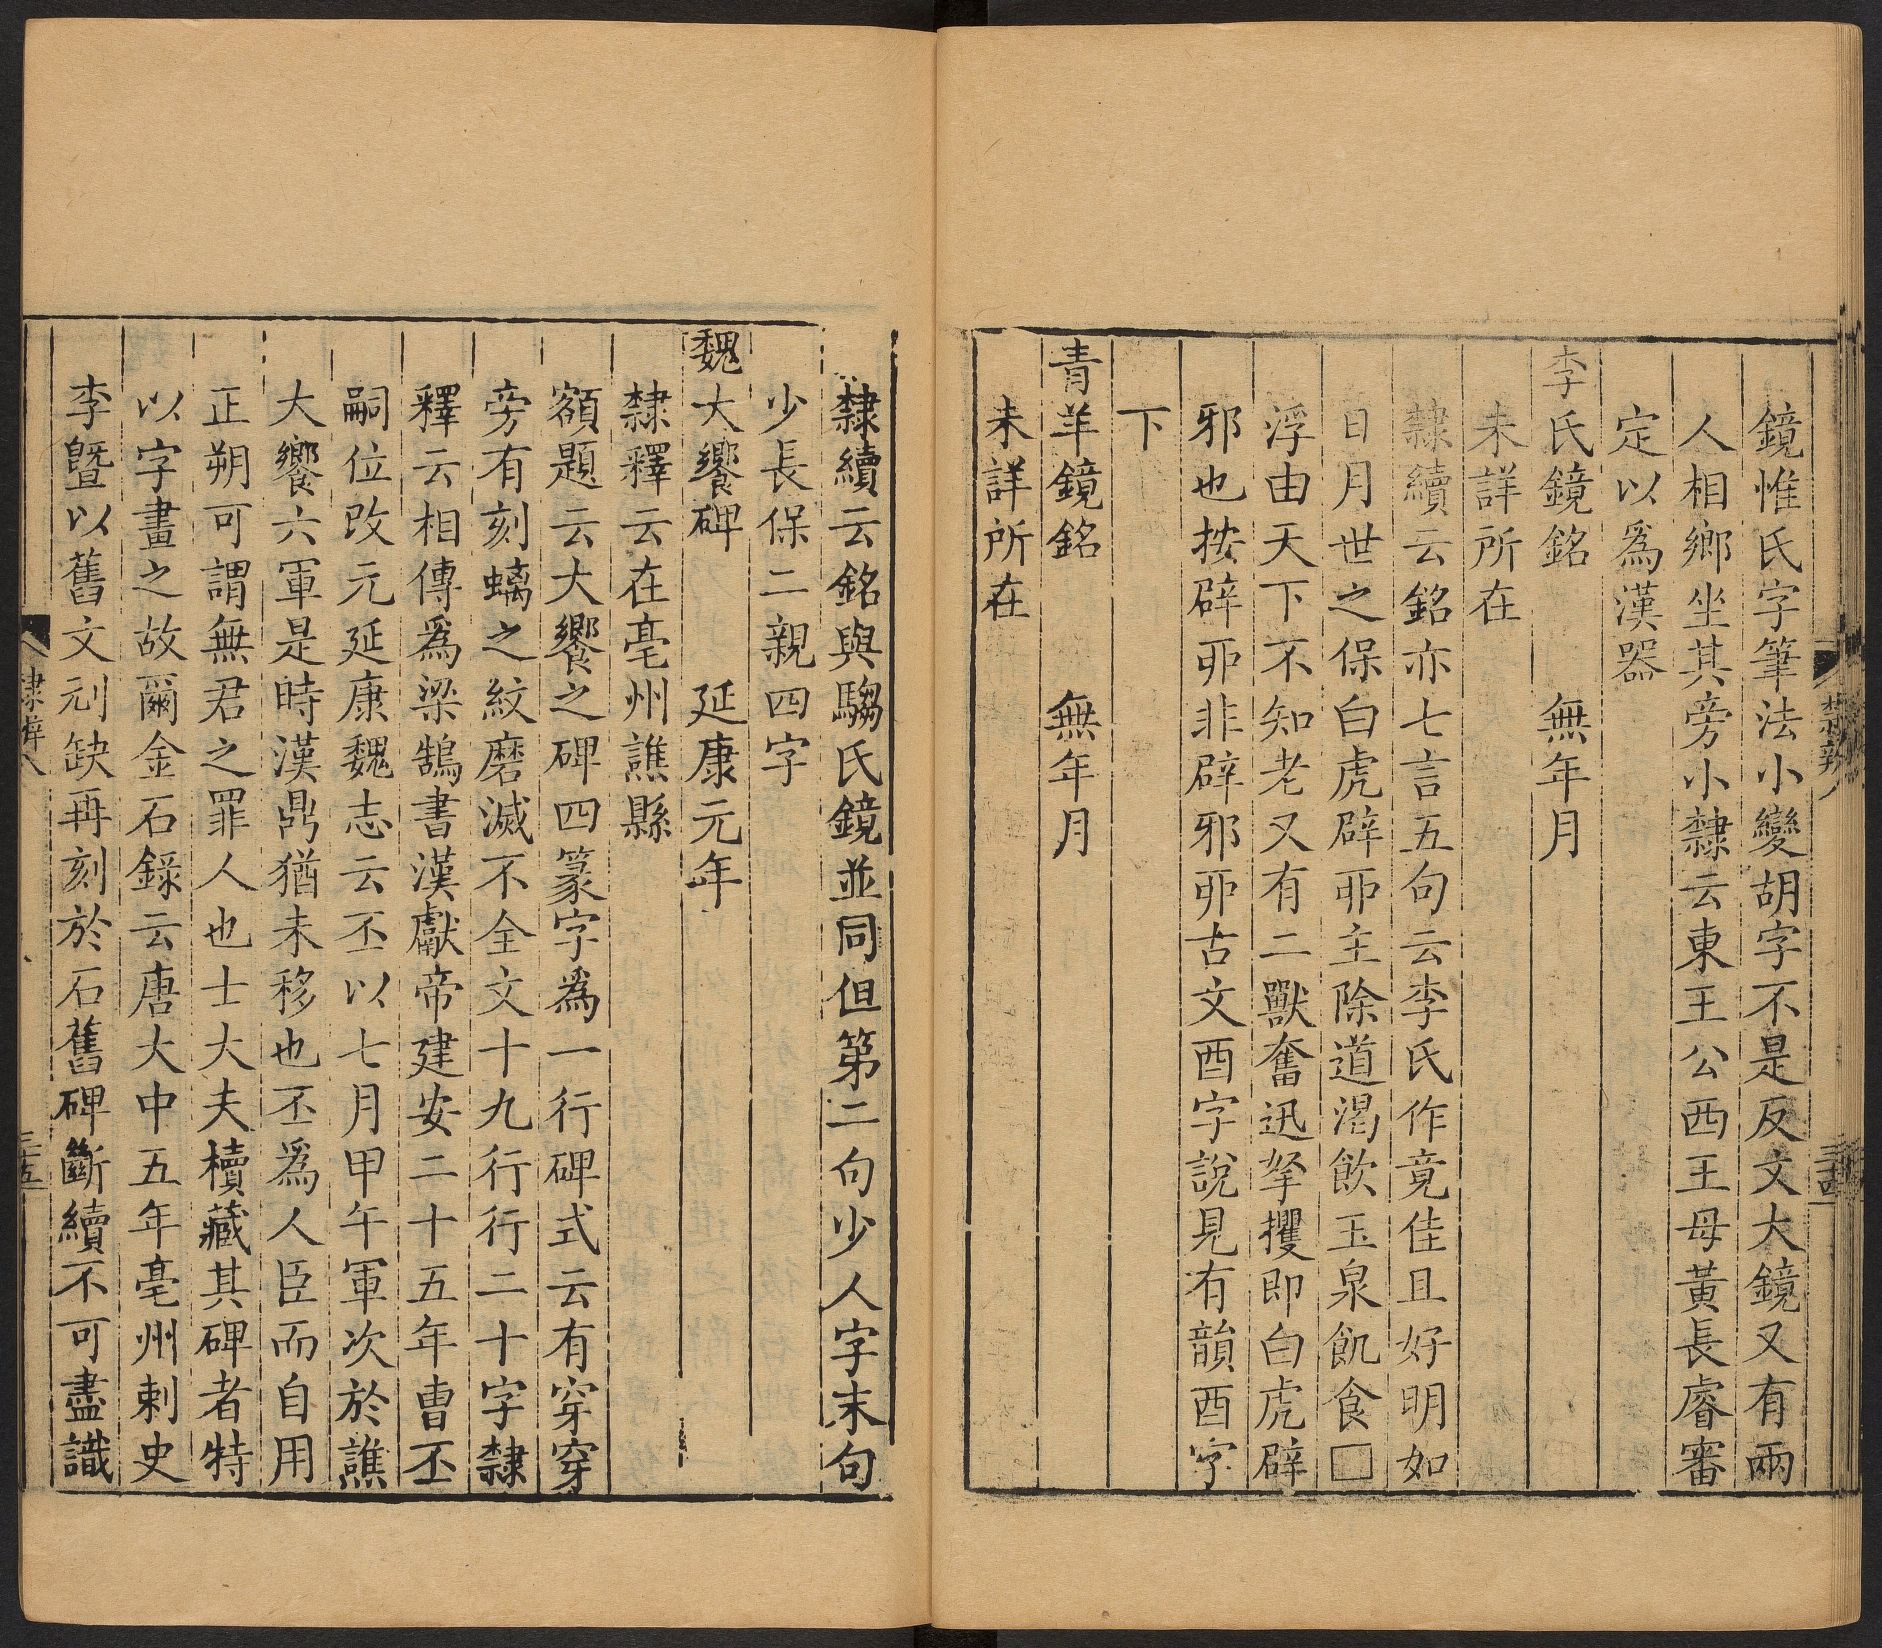 鏡惟氏字筆法小變胡字不是反文大鏡又有兩
人相鄉坐其旁小隸云東王公西王母黃長睿審
定以爲漢器
李氏鏡銘 無年月
未詳所在
隸續云銘亦七言五句云李氏作竟佳且好明如
日月世之保白虎辟卭主除道渴飲玉泉飢食□
浮由天下不知老又有二獸奮迅拏攫即白虎辟
邪也按辟卭非辟邪卭古文酉字說見有韻酉字
下
青羊鏡銘 無年月
未詳所在
隸續云銘與騶氏鏡並同但第二句少人字末句
少長保二親四字
魏大饗碑 延康元年
隸釋云在亳州譙縣
額題云大饗之碑四篆字爲一行碑式云有穿穿
旁有刻螭之紋磨滅不全文十九行行二十字隸
釋云相傳爲梁鵠書漢獻帝建安二十五年曹丕
嗣位改元延康魏志云丕以七月甲午軍次於譙
大饗六軍是時漢鼎猶未移也丕爲人臣而自用
正朔可謂無君之罪人也士大夫櫝藏其碑者特
以字畫之故爾金石錄云唐大中五年亳州刺史
李暨以舊文刓缺再刻於石舊碑斷續不可盡識